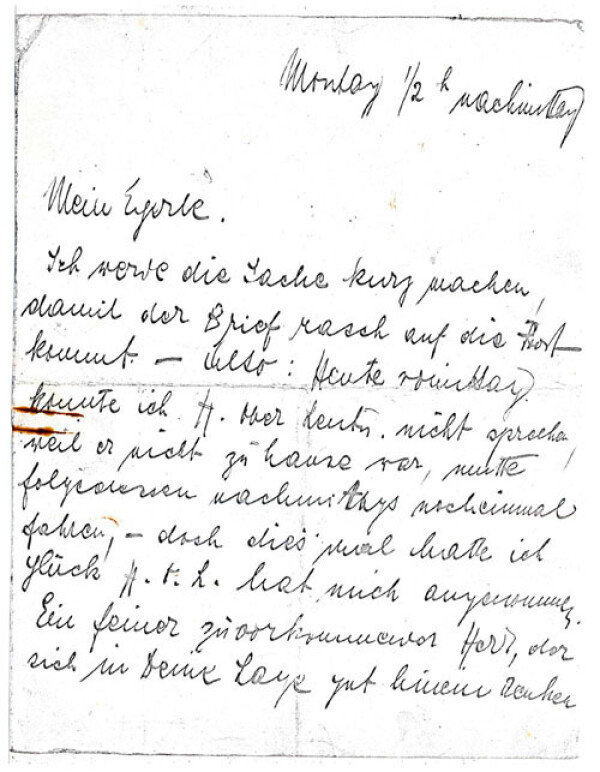 Montag 1/2 h nachmittag
Mein Egerle.
Ich werde die Sache kurz machen,
damit der Brief rasch auf die Post
kommt. — Also: Heute vormittag
konnte ich H. Ober nicht sprechen,
weil er nicht zu hause war, mußte
folgedessen nachmittags nocheinmal
fahren, — doch dies mal hatte ich
Glück H. O. L. hat mich angenommen.
Ein feiner zuvorkommender Herr, der
sich in Deine Lage gut hinein denken